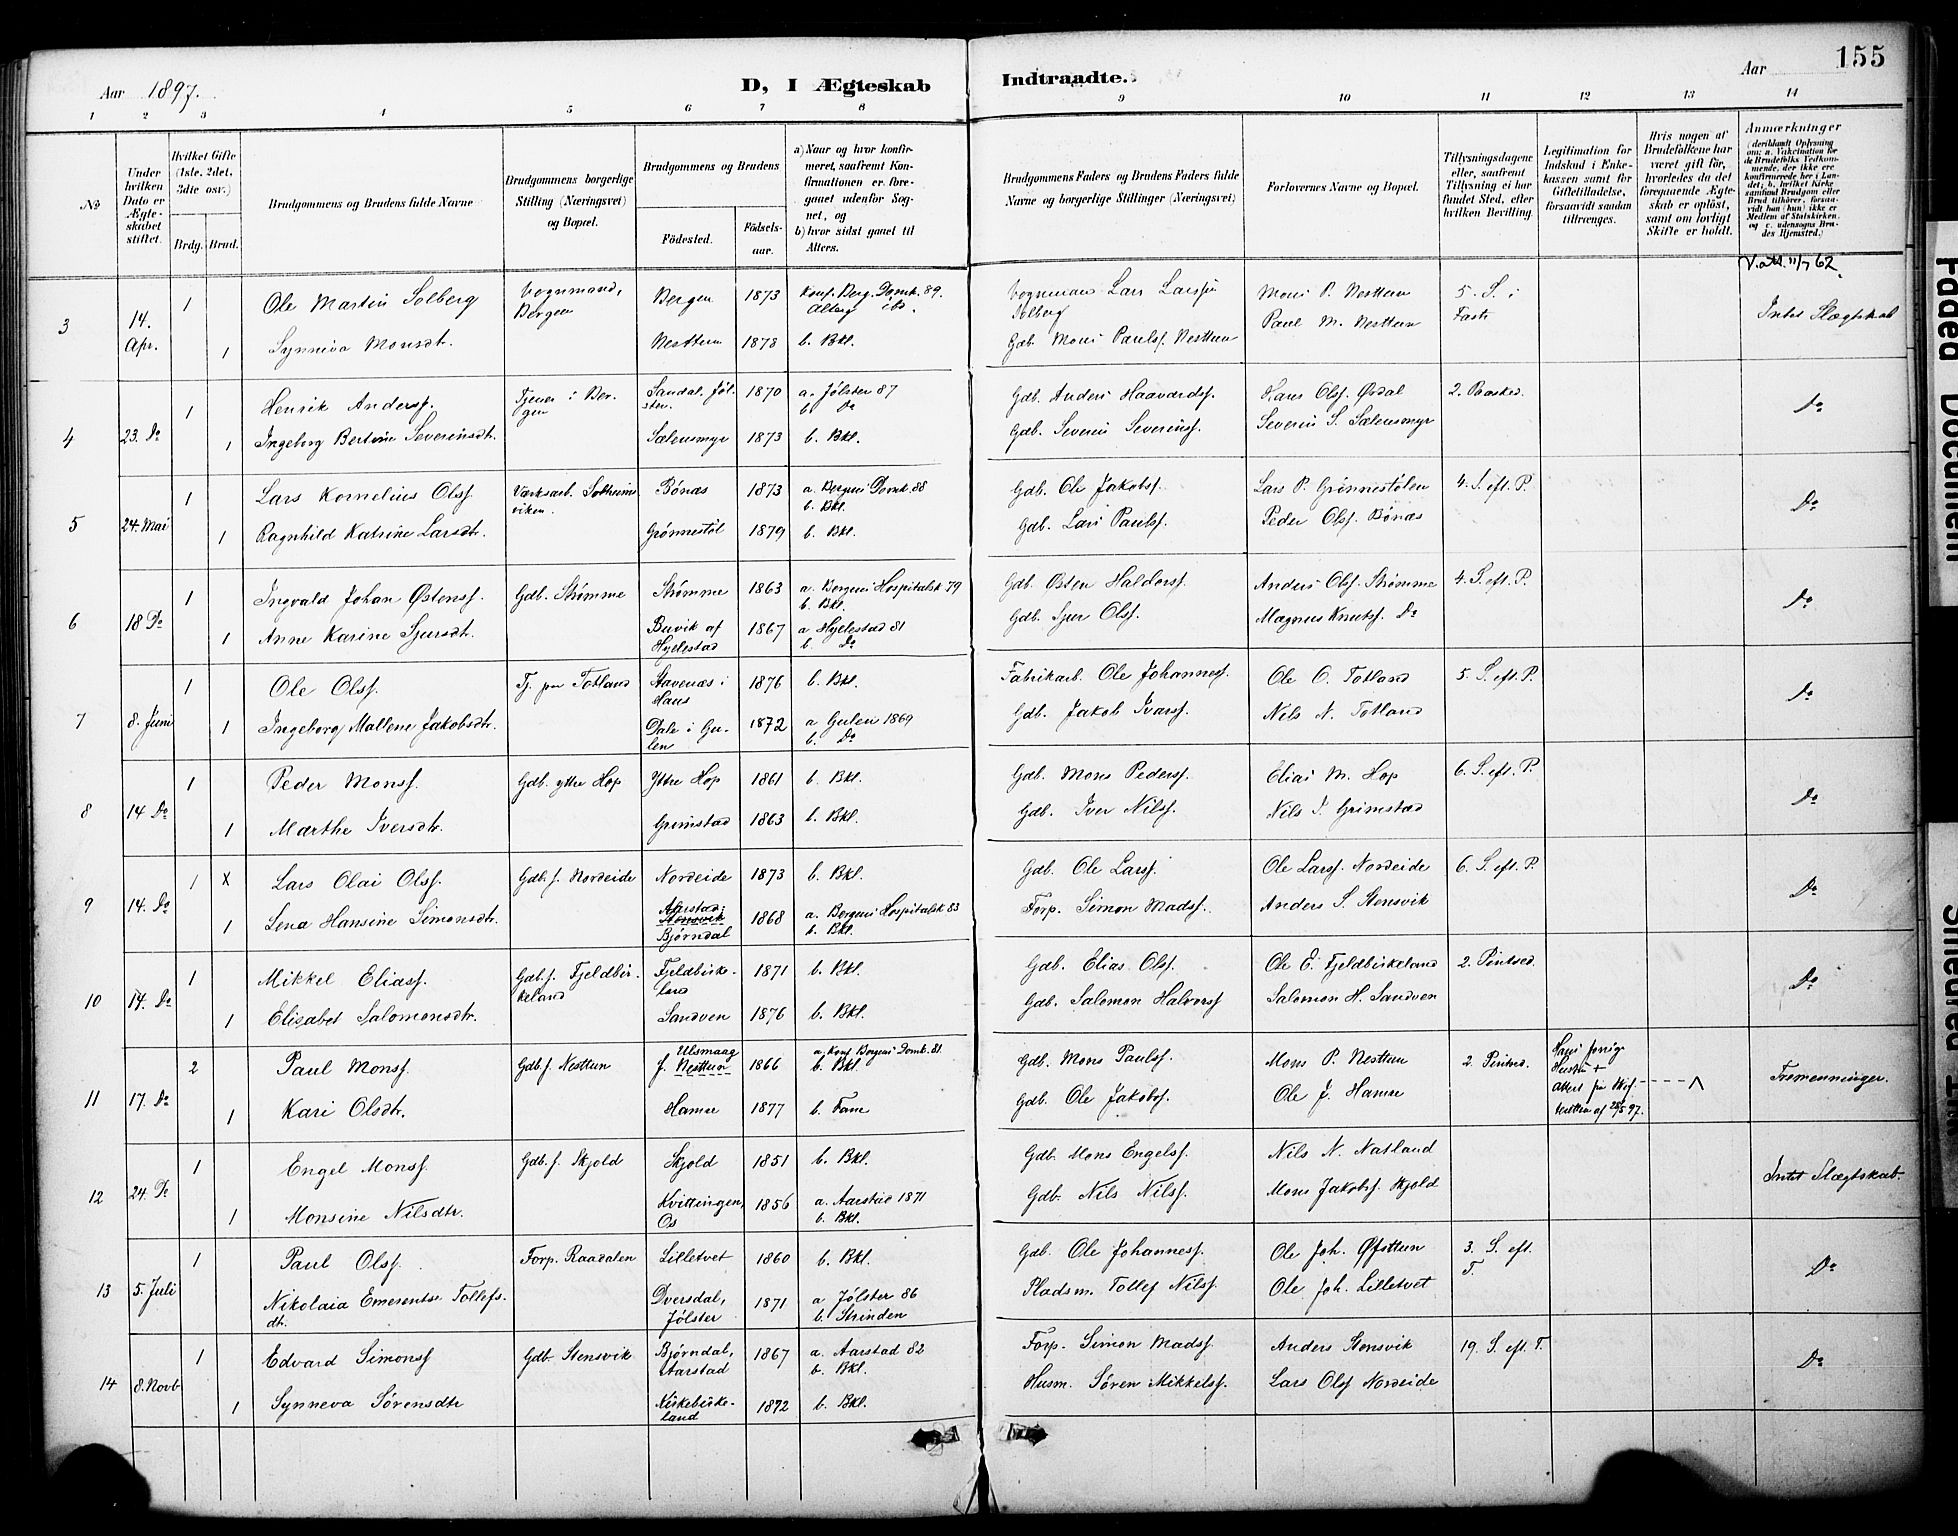 155
Aar 1897.
D, I Ægteskab Indtraadte.
Aar
1 2 3 4 5 6 7 8 9 10 11 12 13 14
No
Under hvilken Dato er Ægteskabet stiftet.
Hvilket Gifte (1ste, 2det, 3die osv.)
Brdg. Brud.
Brudgommens og Brudens fulde Navne
Brudgommens borgerlige Stilling (Næringsvei) og Bopæl.
Brudgommens og Brudens
Fødested. Fødsels-aar.
a) Naar og hvor konfirmeret, saafremt Konfirmationen er foregaaet udenfor Sognet, og
b) hvor sidst gaaet til Alters.
Brudgommens Faders og Brudens Faders fulde Navne og borgerlige Stillinger (Næringsvei)
Forlovernes Navne og Bopæl.
Tillysningsdagene eller, saafremt Tillysning ei har fundet Sted, efter hvilken Bevilling.
Legitimation for Indskud i Enkekassen samt for Giftetilladelse, forsaavidt saadan tiltrænges.
Hvis nogen af Brudefolkene har været gift før, hvorledes da det foregaaende Ægteskab er opløst, samt om lovligt Skifte er holdt.
Anmærkninger (deriblandt Oplysning om: a. Vakcination for de Brudefolks Vedkommende, der ikke ere konfirmerede her i Landet; b. hvilket Kirkesamfund Brudgom eller Brud tilhører, forsaavidt han (hun) ikke er Medlem af Statskirken, og c. udensogns Brudes Hjemsted.)
V.att. 11/7 62.
3 14. Apr. 1 Ole Martin Solberg Vognmand, Bergen Bergen 1873 Konf. Berg. Domk. 89. Vognman Lars Larssen Solberg Mons P. Nesttun 5. S. i Faste Intet Slægtskab
1 Synneva Monsdtr. Nesttun 1878 b. Bkl. Gdb. Mons Paulsf. Nesttun Paul M. Nesttun
4 23. Do 1 Henrik Andersf. Tjener i Bergen Sandal. Jølster. 1870 a. Jølster 87 b. Do Gdb. Anders Haavardsf. Hans Olsf. Øvdal 2. Paasked. Do
1 Ingeborg Bertine Severinsdtr. Sælensmyr 1873 b. Bkl. Gdb. Severin Severinsf. Severin S. Sælensmyr
5 24. Mai 1 Lars Kornelius Olsf Værksarb. Solheimsviken. Bønæs 1873 a. Bergens Domk. 88 b. Bkl. Gdb. Ole Jakobsf. Lars P. Grønnestølen 4. S. eft. P. Do
1 Ragnhild Katrine Larsdtr. Grønnestøl 1879 b. Bkl. Gdb. Lars Paulsf. Peder Olsf. Bønæs
6 18 Do 1 Ingvald Johan Østensf. Gdb. Strømme Strømme 1863 a. Bergens Hospitalsk 79 b. Bkl. Gdb. Østen Haldorsf. Anders Olsf. Strømme 4. S. eft. P. Do
1 Anne Karine Sjursdtr. Buvik af Hjelestad 1867 a Hjelestad 81 b. Do Gdb. Sjur Olsf. Magnus Knutsf. Do
7 8. Juni 1 Ole Olsf. Tj. paa Totland Stavenæs i Haus 1876 b. Bkl. Fabrikarb. Ole Johannesf. Ole O. Totland 5. S. eft. P. Do
1 Ingeborg Mallene Jakobsdtr. Dale i Gulen 1872 a Gulen 1869 b. Do Gdb. Jakob Ivarsf. Nils N. Totland
8 14 Do 1 Peder Monsf. Gdb. ytre Hop Ytre Hop 1861 b. Bkl. Gdb. Mons Pedersf. Elias M. Hop 6. S. eft. P. Do
1 Marthe Iversdtr. Grimstad 1863 b. Bkl. Gdb. Iver Nilsf. Nils I. Grimstad
9 14. Do 1 X Lars Olai Olsf. Gdb.f. Nordeide Nordeide 1873 b. Bkl. Gdb. Ole Larsf. Ole Larsf. Nordeide 6. S. eft. P. Do
1 Lena Hansine Simonsdtr. Aarstad: Stensvik Bjørndal 1868 a. Bergens Hospitalsk 83 b. Bkl. Forp. Simon Madsf. Anders S. Stensvik
10 14. Do 1 Mikkel Eliasf. Gdb.f. Fjeldbirkeland Fjeldbirkeland 1871 b. Bkl. Gdb. Elias Olsf. Ole E. Fjeldbirkeland 2. Pintsed. Do
1 Elisabet Salomonsdtr. Sandven 1876 b. Bkl. Gdb. Salomon Halvorsf Salomon H. Sandven
11 17. Do 2 Paul Monsf. Gdb.f. Nesttun Ulsmaag f. Nesttun 1866 a. Konf Bergens Domk. 81 b. Bkl. Gdb. Mons Paulsf. Mons P. Nesttun 2 Pintsed. Hans forrige Hustru + Attest fra Skif- 28/5 97. Fremenninger.
1 Kari Olsdtr. Hamre 1877 b. Fane Gdb. Ole Jakobsf. Ole J. Hamre
12 24. Do 1 Engel Monsf. Gdb.f. Skjold Skjold 1851 b. Bkl. Gdb. Mons Engelsf. Nils N. Natland Intet Slægtskab.
1 Monsine Nilsdtr. Kvittingen, Os 1856 a. Aarstad 1871 b. Bkl. Gdb. Nils Nilsf. Mons Jakobsf. Skjold
13 5. Juli 1 Paul Olsf. Forp. Raadalen Lilletvet 1860 b. Bkl. Gdb. Ole Johannesf. Ole Joh. Øfsttun 3. S. eft. T. Do
1 Nikolaia Emerentse Tollefsdtr. Dversdal, Jølster 1871 a Jølster 86 b. Strinden Pladsm. Tollef Nilsf. Ole Joh. Lilletvet
14 8. Novb 1 Edvard Simonsf Gdb. Stensvik Bjørndal, Aarstad 1867 a. Aarstad 82 b. Bkl. Forp. Simon Madsf. Anders Stensvik 19. S. eft. T. Do
1 Synneva Sørensdtr Kirkebirkeland 1872 b. Bkl. Husm. Søren Mikkelsf. Lars Olsf Nordeide
Faded Document
Smeared Ink